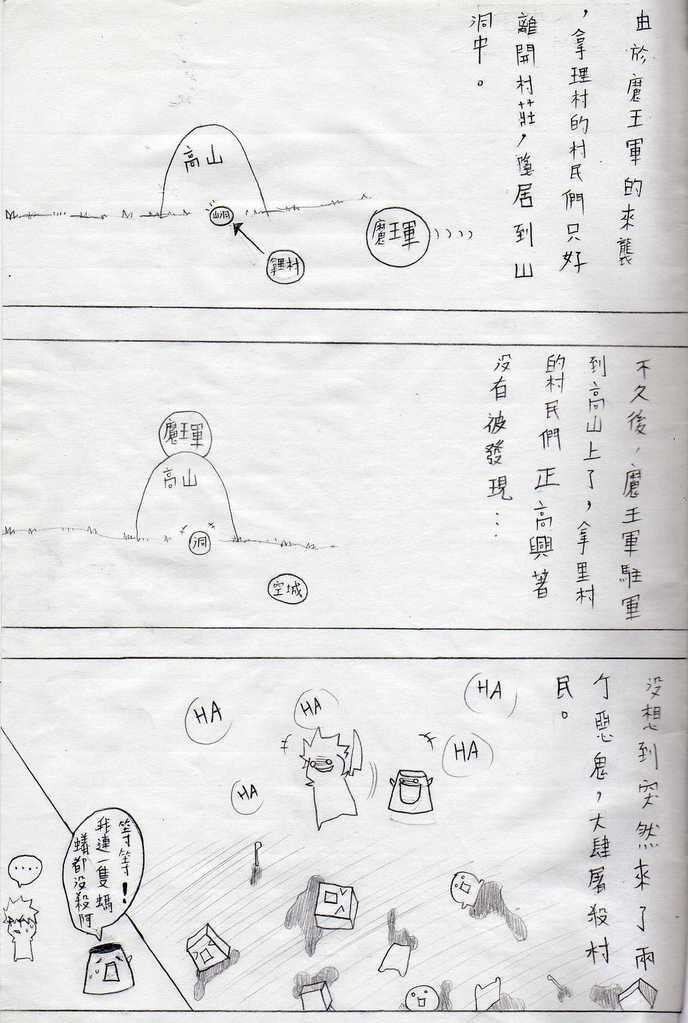 由於魔王軍的來襲
，拿理村的村民們只好
離開村莊，隱居到山
洞中。
高山
山洞
魔王軍
拿里村
不久後，魔王軍駐軍
到高山上了，拿里村
的村民們正高興著
沒有被發現…
魔王軍
高山
洞
空城
沒想到突然來了兩
个惡鬼，大肆屠殺村
民。
HA
HA
HA
HA
HA
等等！
我連一隻螞
蟻都沒殺阿
...